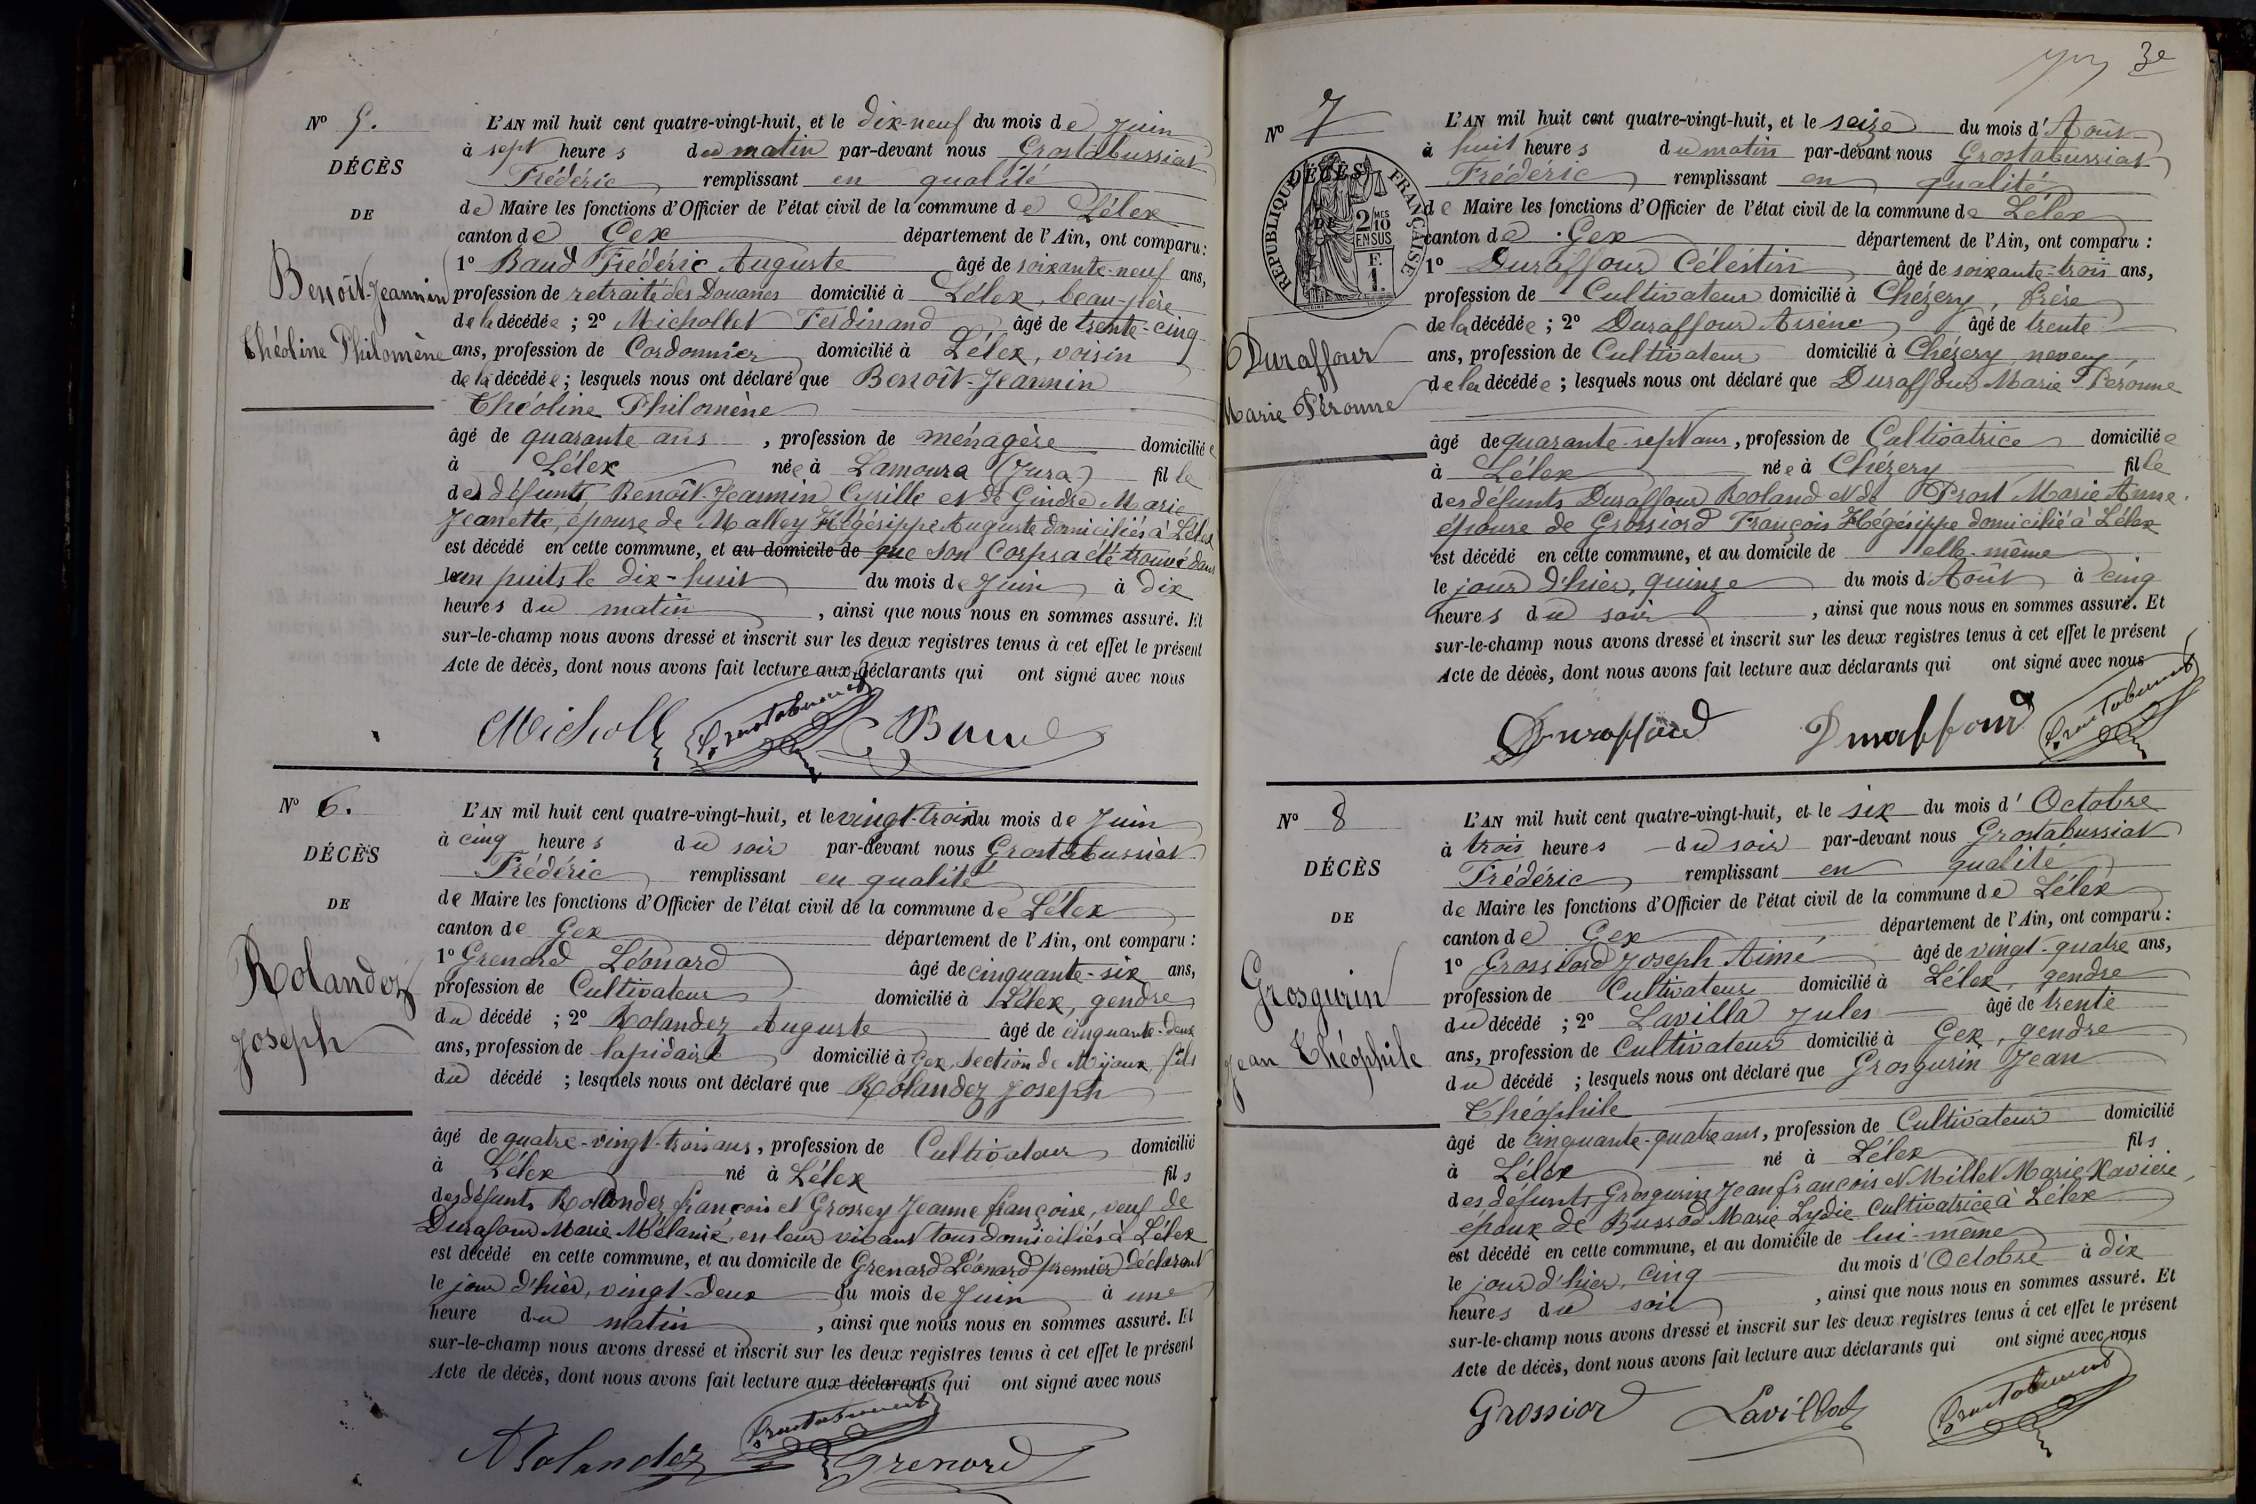 Nº 5.
DÉCÈS
DE
Benoît-Jeannin
Théoline Philomène
L'AN mil huit cent quatre-vingt-huit, et le dix-neuf du mois de Juin
à sept heures du matin par-devant nous Grostabussiat
Frédéric remplissant en qualité
de Maire les fonctions d'Officier de l'état civil de la commune de Lélex
canton de Gex département de l'Ain, ont comparu :
1º Baud Frédéric Auguste âgé de soixante-neuf ans,
profession de retraité des Douanes domicilié à Lélex, beau-père
de la décédée ; 2º Michollet Ferdinand âgé de trente-cinq
ans, profession de Cordonnier domicilié à Lélex, voisin
de la décédée ; lesquels nous ont déclaré que Benoît-Jeannin
Théoline Philomène
âgé de quarante ans , profession de ménagère domiciliée
à Lélex née à Lamoura (Jura) fille
des défunts Benoît-Jeannin Cyrille et de Gindre Marie
Jeanette, épouse de Malley Hégésippe Auguste domiciliés à Lélex
est décédé en cette commune, et au domicile de que son Corps a été trouvé dans
un puits le dix-huit du mois de Juin à dix
heures du matin , ainsi que nous nous en sommes assuré. Et
sur-le-champ nous avons dressé et inscrit sur les deux registres tenus à cet effet le présent
Acte de décès, dont nous avons fait lecture aux déclarants qui ont signé avec nous
Micholl Grostabussiat Baud
Nº 6.
DÉCÈS
DE
Rolandez
Joseph
L'AN mil huit cent quatre-vingt-huit, et le vingt-trois du mois de Juin
à cinq heures du soir par-devant nous Grostabussiat
Frédéric remplissant en qualité
de Maire les fonctions d'Officier de l'état civil de la commune de Lélex
canton de Gex département de l'Ain, ont comparu :
1º Grenard Léonard âgé de cinquante-six ans,
profession de Cultivateur domicilié à Lélex, gendre
du décédé ; 2º Rolandez Auguste âgé de cinquante-deux
ans, profession de lapidaire domicilié à Gex, Section de Mijoux, fils
du décédé ; lesquels nous ont déclaré que Rolandez Joseph
âgé de quatre-vingt-trois ans, profession de Cultivateur domicilié
à Lélex né à Lélex fils
des défunts Rolandez françois et Grossey Jeanne françoise, veuf de
Durafour Marie Mélanie, en leur vivant tous domiciliés à Lélex
est décédé en cette commune, et au domicile de Grenard Léonard premier déclarant
le jour d'hier, vingt-deux du mois de Juin à une
heure du matin , ainsi que nous nous en sommes assuré. Et
sur-le-champ nous avons dressé et inscrit sur les deux registres tenus à cet effet le présent
Acte de décès, dont nous avons fait lecture aux déclarants qui ont signé avec nous
Rolandez Grostabussiat Grenard
3e
Nº 7
DÉCÈS
DE
RÉPUBLIQUE FRANÇAISE
2/10 MES
EN SUS
F.
1.
Duraffour
Marie Péronne
L'AN mil huit cent quatre-vingt-huit, et le seize du mois d'Août
à huit heures du matin par-devant nous Grostabussiat
Frédéric remplissant en qualité
de Maire les fonctions d'Officier de l'état civil de la commune de Lélex
canton de Gex département de l'Ain, ont comparu :
1º Duraffour Célestin âgé de soixante-trois ans,
profession de Cultivateur domicilié à Chézery, frère
de la décédée ; 2º Duraffour Arsène âgé de trente
ans, profession de Cultivateur domicilié à Chézery neveu
de la décédée ; lesquels nous ont déclaré que Duraffour Marie Péronne
âgé de quarante-sept ans, profession de Cultivatrice domiciliée
à Lélex née à Chézery fille
des défunts Duraffour Roland et de Prost Marie Anne.
épouse de Grossiord François Hégésippe domicilié à Lélex
est décédé en cette commune, et au domicile de elle-même
le jour d'hier, quinze du mois d'Août à cinq
heures du soir , ainsi que nous nous en sommes assuré. Et
sur-le-champ nous avons dressé et inscrit sur les deux registres tenus à cet effet le présent
Acte de décès, dont nous avons fait lecture aux déclarants qui ont signé avec nous
Duraffour Duraffour Grostabussiat
Nº 8
DÉCÈS
DE
Grosgurin
Jean Théophile
L'AN mil huit cent quatre-vingt-huit, et le six du mois d'Octobre
à trois heures du soir par-devant nous Grostabussiat
Frédéric remplissant en qualité
de Maire les fonctions d'Officier de l'état civil de la commune de Lélex
canton de Gex département de l'Ain, ont comparu :
1º Grossiord Joseph Aimé âgé de vingt-quatre ans,
profession de Cultivateur domicilié à Lélex, gendre
du décédé ; 2º Lavilla Jules âgé de trente
ans, profession de Cultivateur domicilié à Gex, gendre
du décédé ; lesquels nous ont déclaré que Grosgurin Jean
Théophile
âgé de cinquante-quatre ans, profession de Cultivateur domicilié
à Lélex né à Lélex fils
des défunts Grosgurin Jean françois et Millet Marie Xavière,
époux de Bussod Marie Lydie Cultivatrice à Lélex
est décédé en cette commune, et au domicile de lui-même
le jour d'hier, cinq du mois d'Octobre à dix
heures du soir , ainsi que nous nous en sommes assuré. Et
sur-le-champ nous avons dressé et inscrit sur les deux registres tenus à cet effet le présent
Acte de décès, dont nous avons fait lecture aux déclarants qui ont signé avec nous
Grossiord Grostabussiat